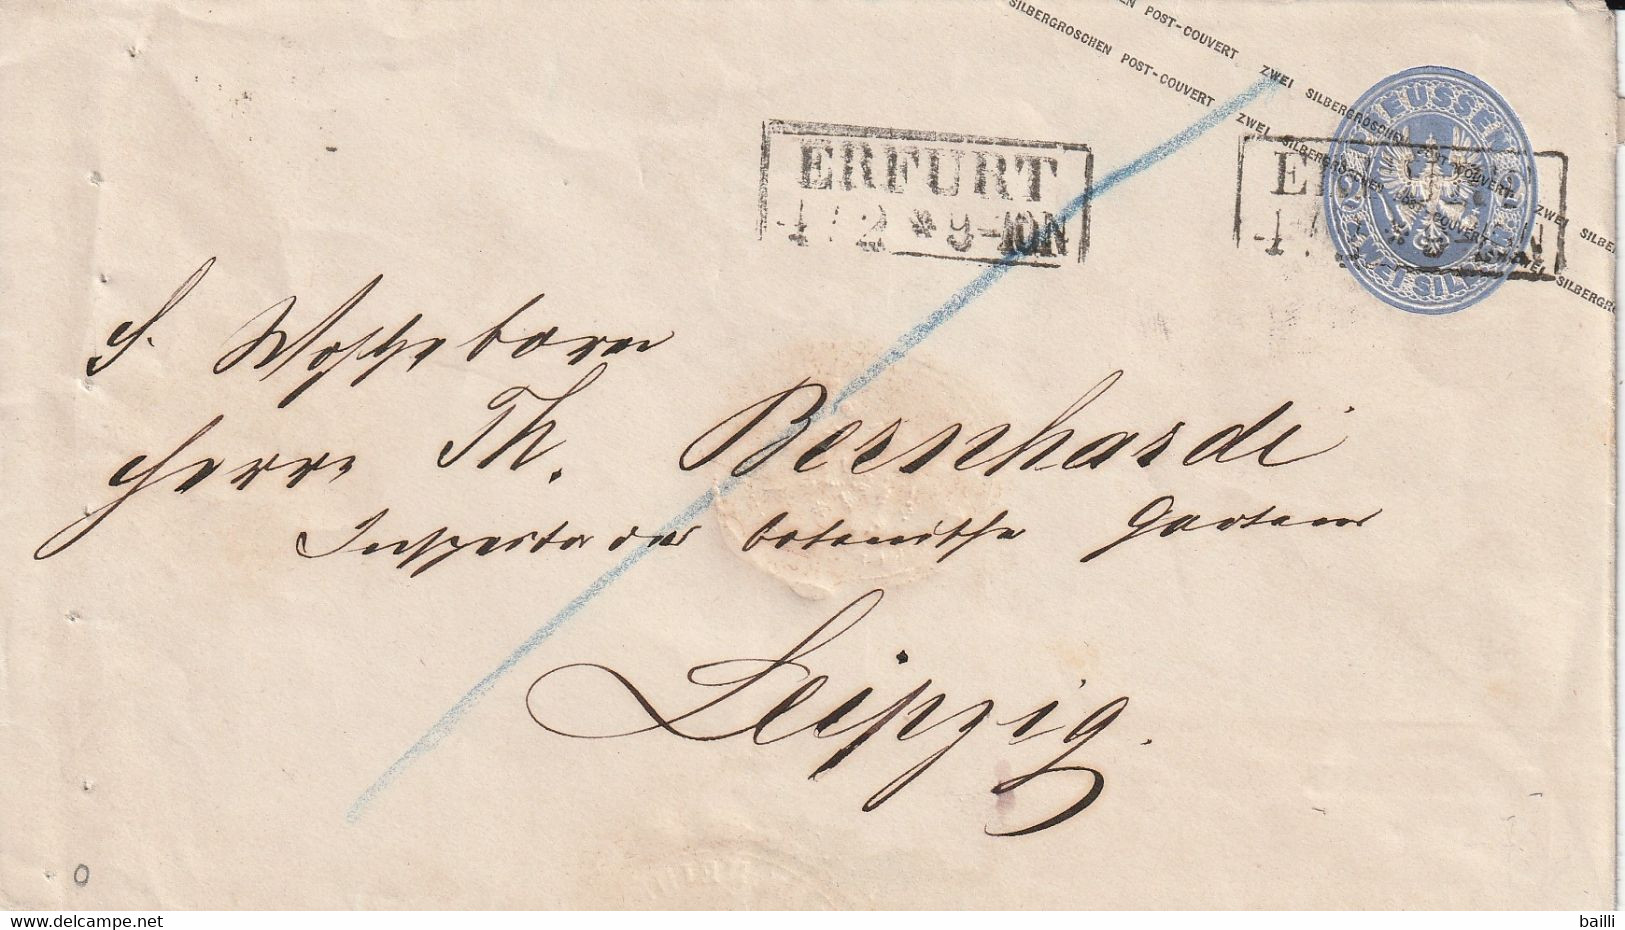 SILBERGROSCHEN POST-COUVERT ZWEI SILBERGROSCHEN POST-COUVERT ZWEI SILBERGR
EN POST-COUVERT ZWEI SILBERGROSCHEN POST COUVERT ZWEI SILBE
PREUSSEN
2 2
ZWEI SILB
ERFURT
4 12 * 9-10N
S. Wohlgeboren
Herrn Th. Bernhardi
Inspector des botanischen Gartens
Leipzig.
0
www.delcampe.net
bailli